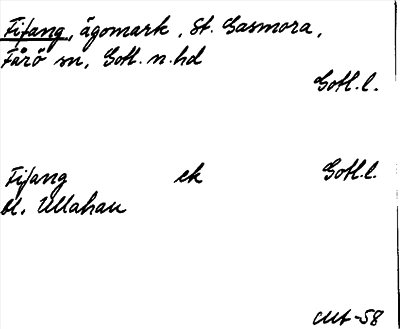 Fifang, ägomark, St. Gasmora,
Fårö sn, Gotl. n. hd
Gotl. l.
Fifang ek Gotl. l.
bl. Ullahau